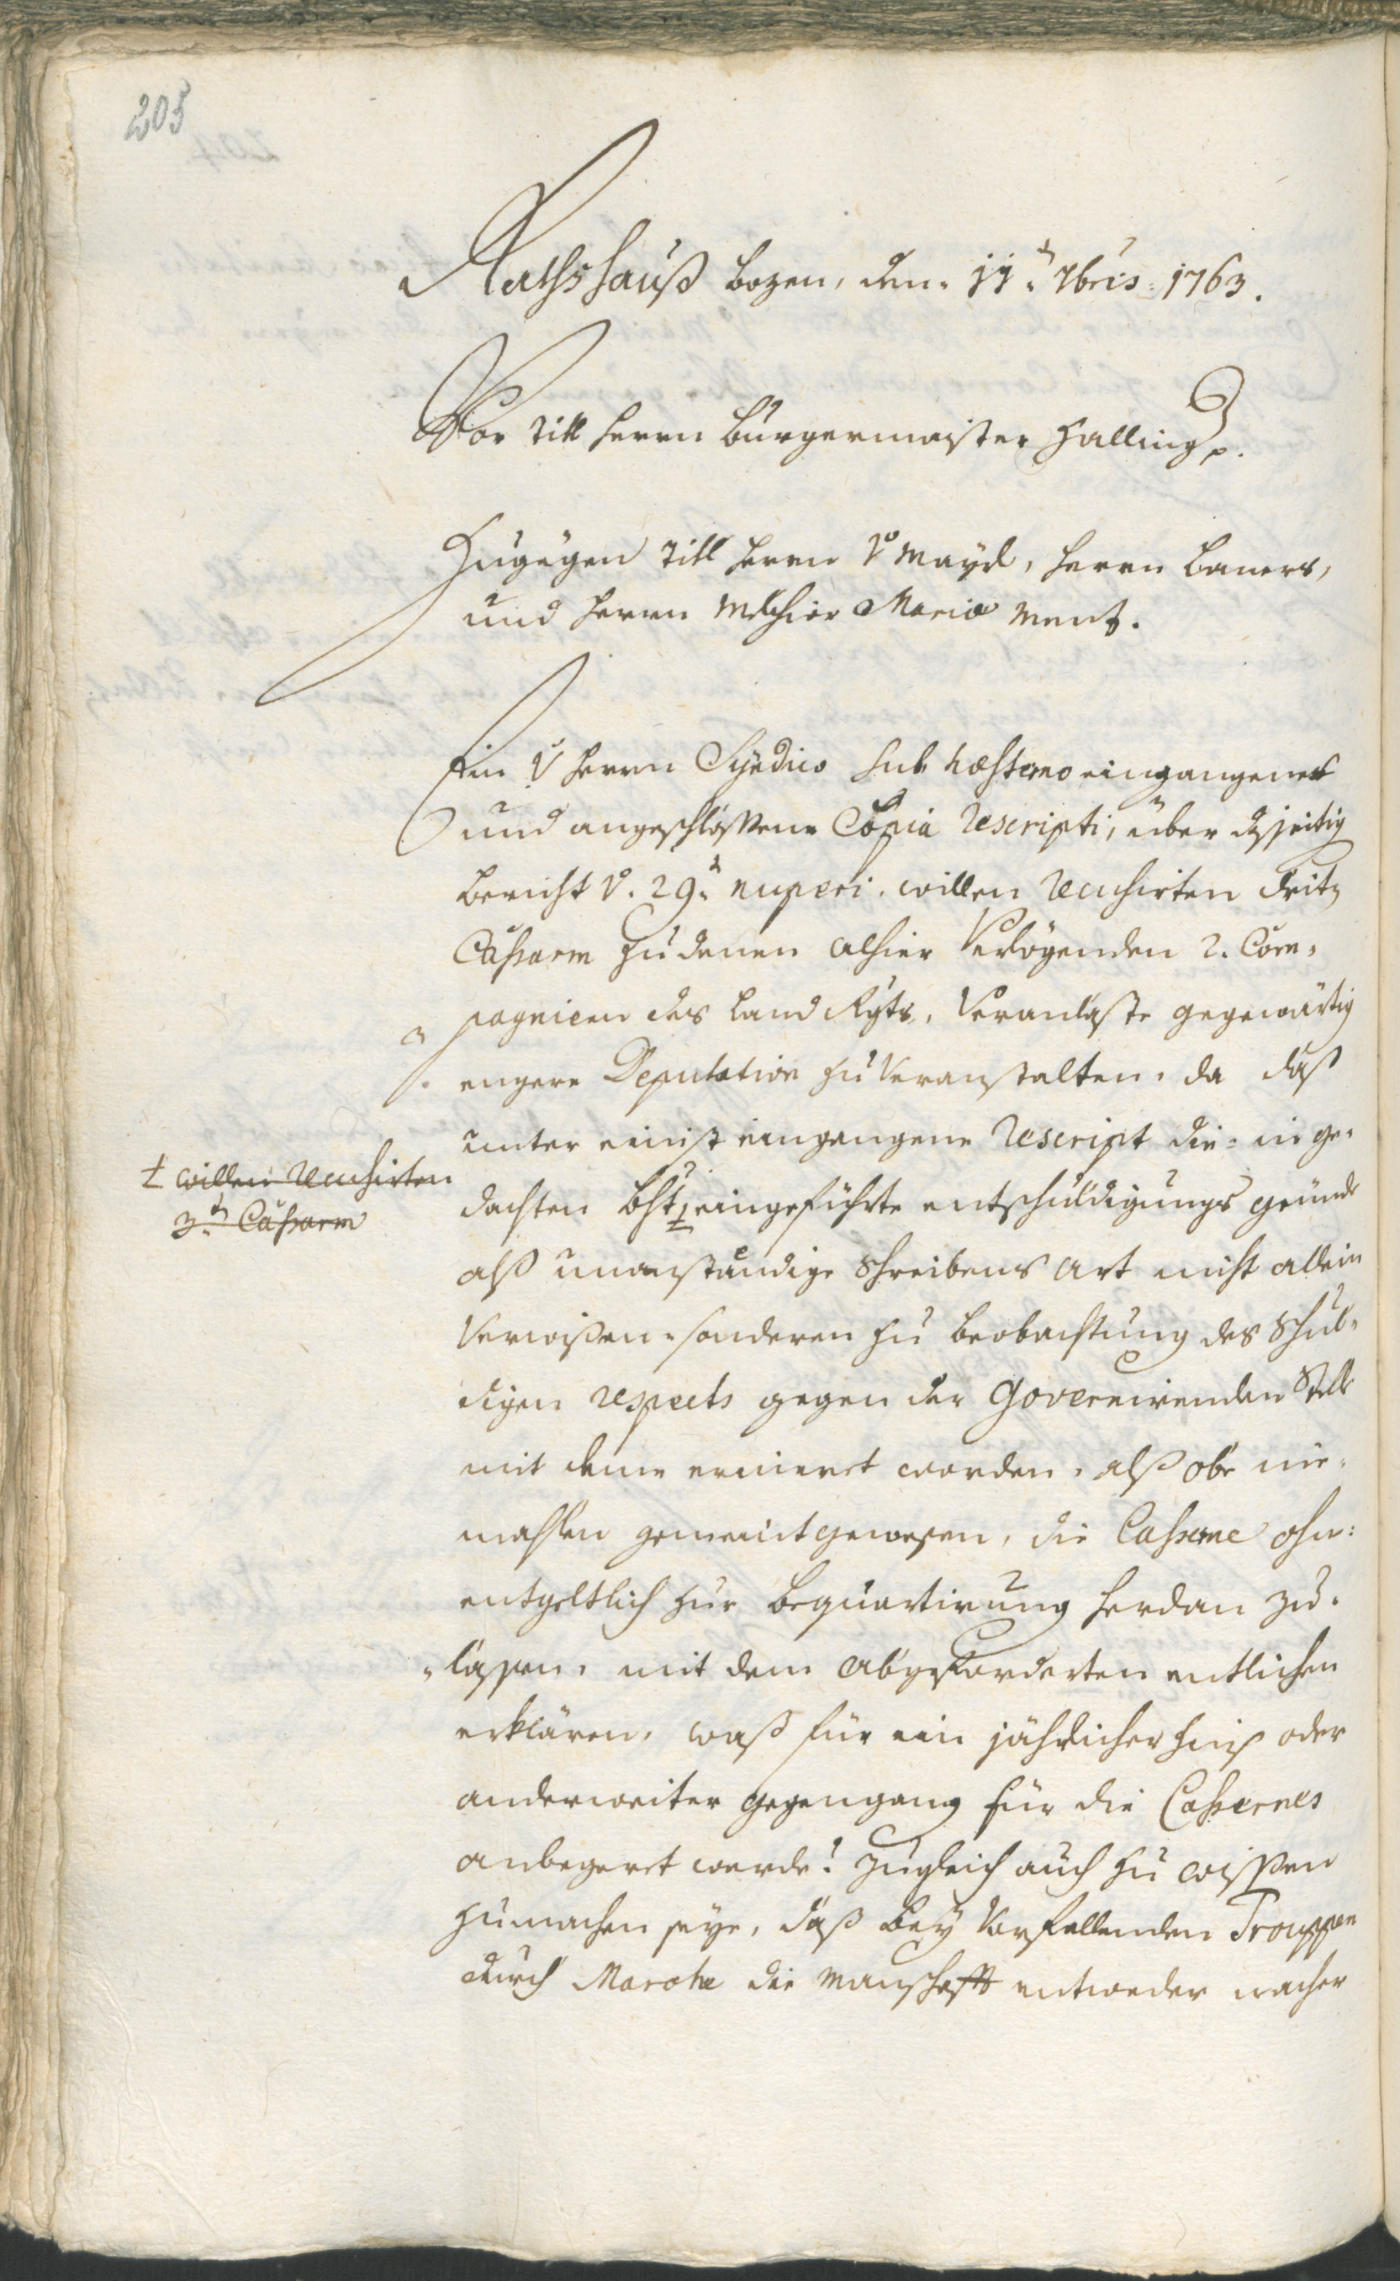 205
Rathshauß Bozen, den 11.t 7bris 1763.
Vor Titl Herrn Burgermaister Halling p.
Zugegen Titl Herrn v Mayrl, Herrn Baners,
und Herrn Melchior Maria Menz.
Ein v Herrn Syndico sub hesterno eingangener
und angeschlossene Copia Rescripti, über dißseitig
Bericht v. 29.t nuperi, willen
Casarm zu denen alhier Verlögenden 2. Com-
pagnien des Land Rgts, Veranlaste gegewärtig
engere Deputation zu Veranstalten, da daß
unter einist eingangene Rescript die in ge-
dachten bht eingeführte entschuldigungs gründe
als unanständige Schreibens Art nicht allein
Verwisen, sonderen zu beobachtung des Schul-
digen respects gegen der Governirenden Stelle
mit deme erineret worden, alß obe nie-
mahlen gemeint gewesen, die Caserne ohn-
entgeltlich zur bequartirung herdan zu-
lassen, mit dem abgeforderten entlichen
erklären, waß für ein jährlicher Zinß oder
anderweiter gegengang für die Casernes
anbegeret werde? Zugleich auch zu wissen
zumachen seye, daß bey Vorfallenden Trouppen
durch Marche die Manschafft entweder nacher
± willen
3.t Casarm